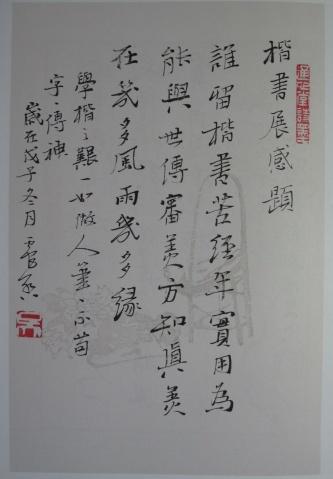 楷書展感題
誰留楷書苦經年實用為
能與世傳審美方知真美
在幾多風雨幾多緣
學楷之艱一如做人筆〻不苟
字〻傳神
歲在戊子冬月